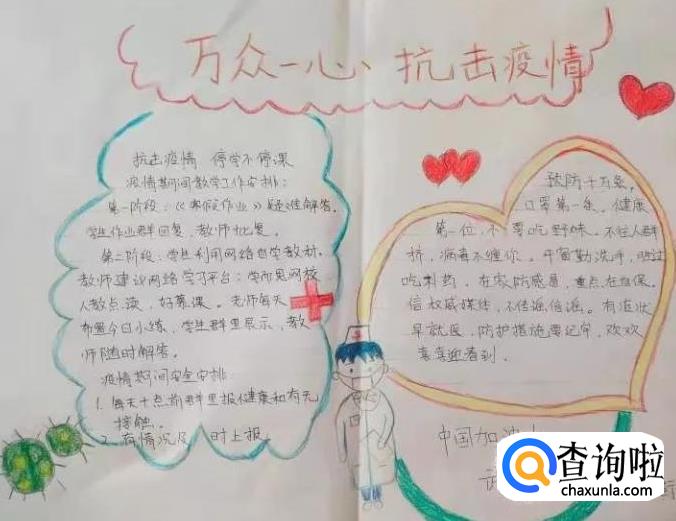 万众一心、抗击疫情
抗击疫情 停学不停课
疫情期间教学工作安排：
第一阶段：《寒假作业》疑难解答。
学生作业群回复，教师批复。
第二阶段：学生利用网络自学教材，
教师建议网络学习平台：学而思网校、
人教点读，好慕课。老师每天
布置今日小练，学生群里展示，教
师随时解答。
疫情期间安全安排：
1、每天十点前群里报健康和有无
接触。
2、有情况及时上报。
预防千万条，
口罩第一条。健康
第一位，不要吃野味。不往人群
挤，病毒不缠你。开窗勤洗手，
吃制药，在家防感冒，重点在自保。
信权威媒体，不传谣信谣。有症状
早就医，防护措施要记牢，欢欢
喜喜迎春到。
中国加油
查询啦
chaxunla.com